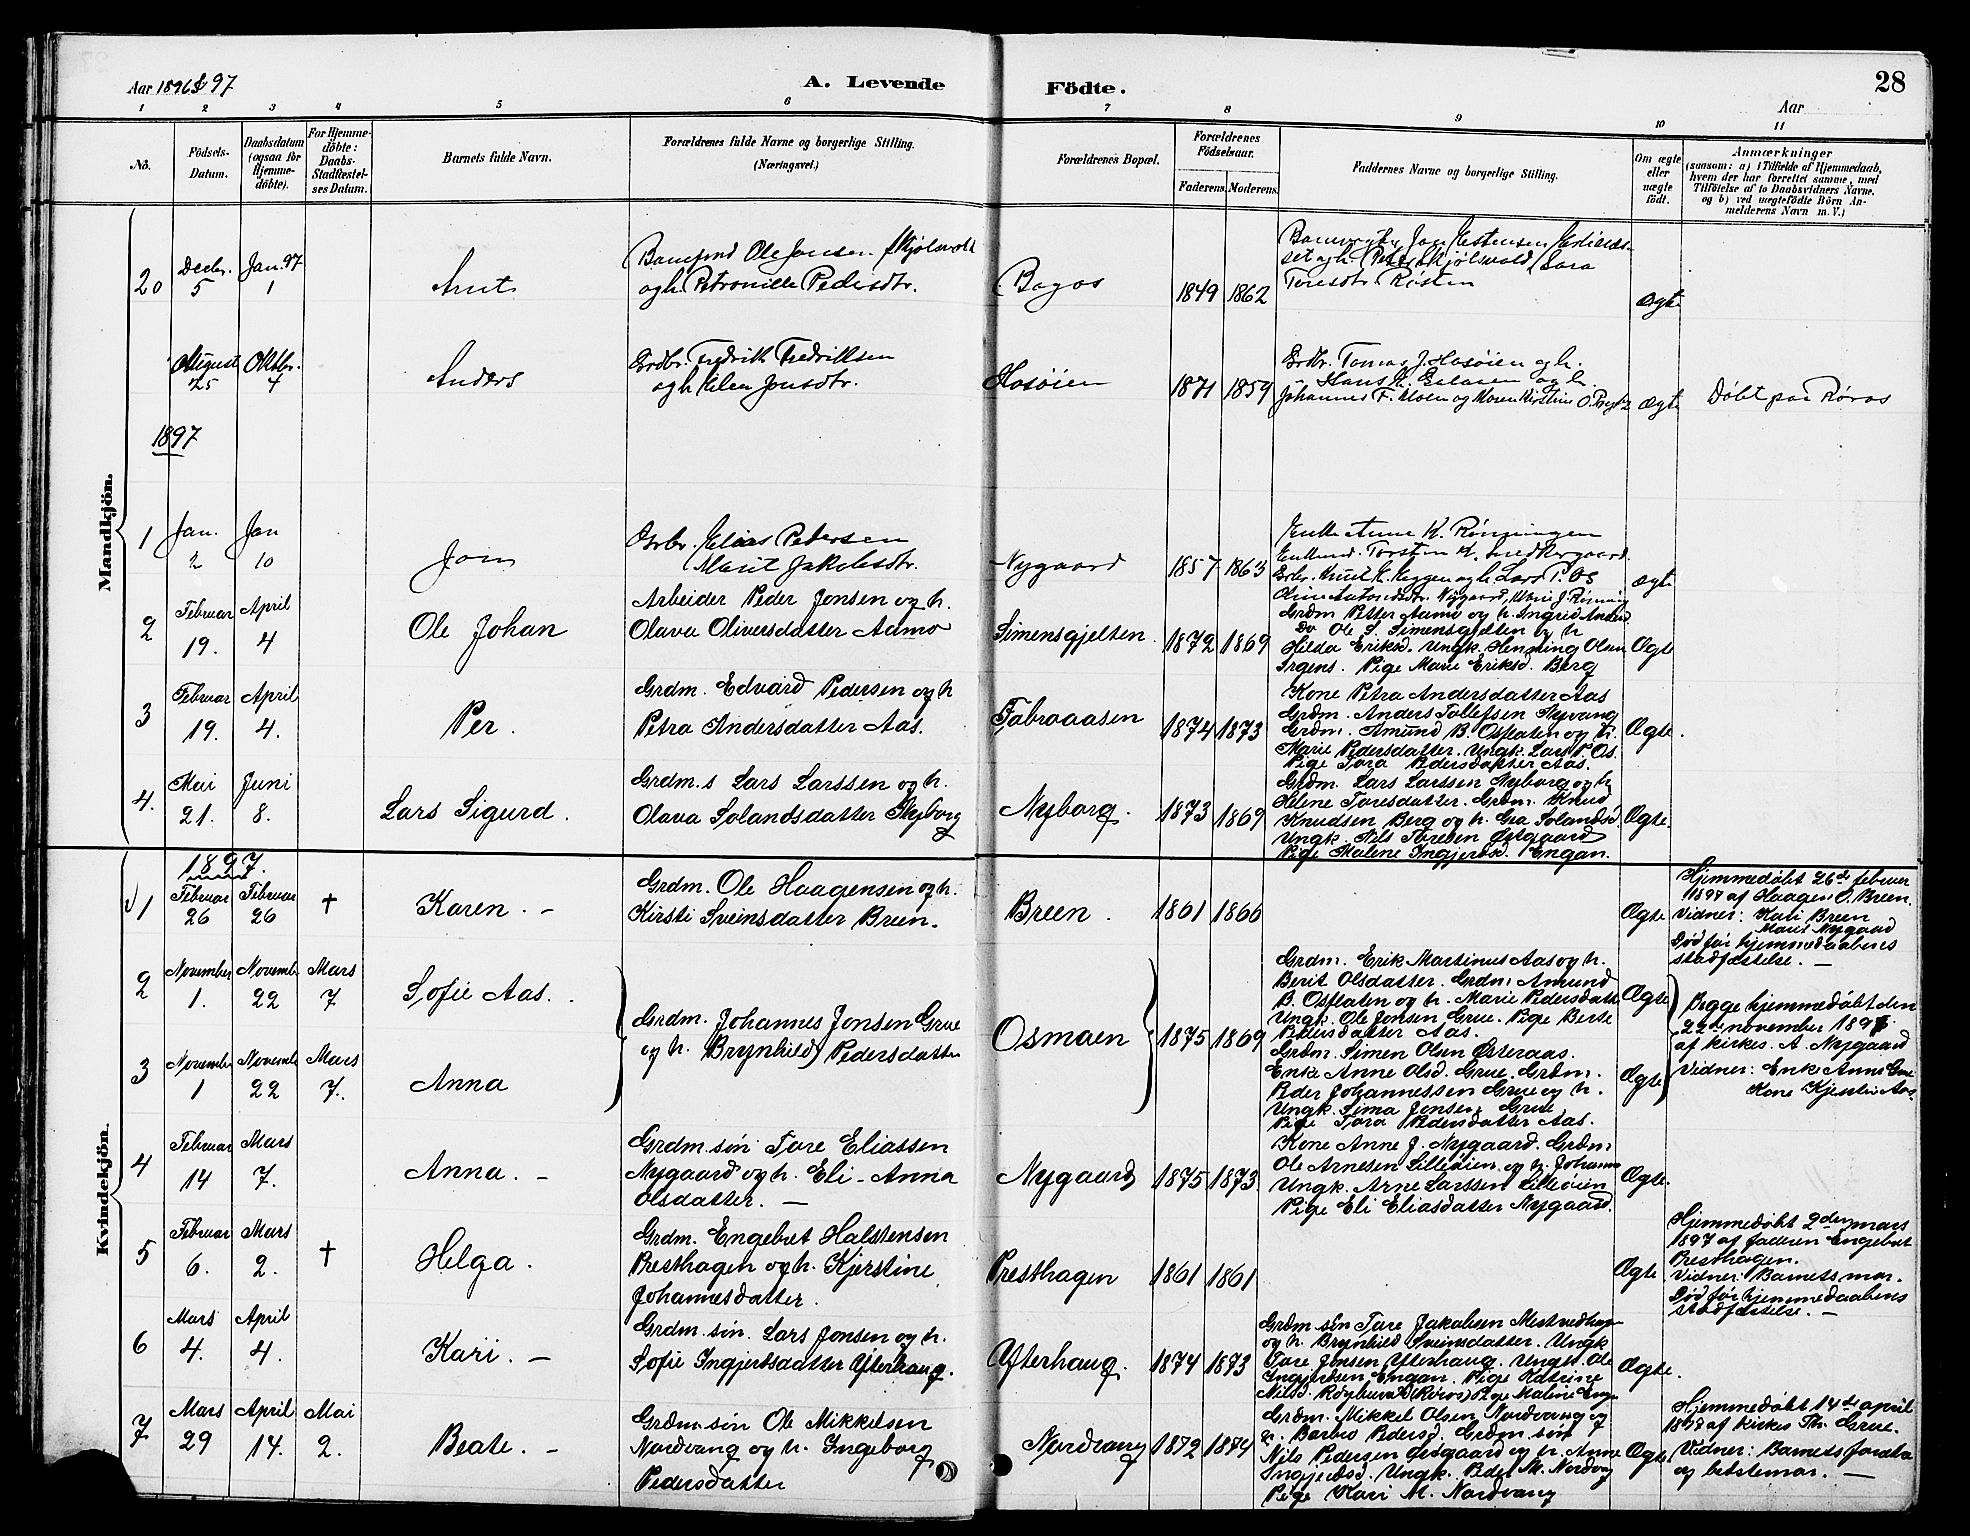 Aar 1896 & 97
A. Levende
Födte.
28
Aar
1 2 3 4 5 6 7 8 9 10 11
No.
Födsels-Datum.
Daabsdatum (ogsaa for Hjemme-döbte).
For Hjemme-döbte: Daabs-Stadfæstel-ses Datum.
Barnets fulde Navn.
Forældrenes fulde Navne og borgerlige Stilling. (Næringsvei.)
Forældrenes Bopæl.
Forældrenes Födselsaar.
Faderens. Moderens.
Faddernes Navne og borgerlige Stilling.
Om ægte eller uægte födt.
Anmærkninger
(saasom: a) i Tilfælde af Hjemmedaab, hvem der har forrettet samme, med Tilföielse af to Daabsvidners Navne. og b) ved uægtefödte Börn An-melderens Navn m. V.)
Mandkjön.
20 Decbr. 5 Jan. 97 1
Arnt
Ole Jonsen
og h. Petronille Pedersdtr.
1849 1862
Toresdtr. Røsten
ægte
August 25 Oktbr. 4
Anders
Grdbr. Fredrik Fredriksen
og h. Elen Jonsdtr.
Hosøien
1871 1859
Grdbr. Tomas J. Hosøien og h.
ægte
Døbt paa Røros
1897
1 Jan. 2 Jan 10
Jon
Elias Pedersen
Marit Jakobsdtr.
Nygaard
1857 1863
Enke Anne K. Rønningen
ægte
2 Februar 19. April 4
Ole Johan
Arbeider Peder Jonsen og h.
Olava Oliversdatter Aamo
Simensgjelten.
1872 1869
Grdm Petter Aamo og h. Ingrid
Do Ole S. Simensgjelten og h
Hilda Eriksd. Ungk. Henning Olsen
Irgens. Pige Marie Eriksd. Berg
Ægte
3 Februar 19. April 4.
Per.
Grdm. Edvard Pedersen og h
Petra Andersdatter Aas.
1874 1873
Kone Petra Andersdatter Aas
Grdm. Anders Tollefsen Nyvang
Grdm. Amund B. Osflaten og h.
Marie Pedersdatter. Ungk. Lars P. Os.
Pige Tora Pedersdatter Aas.
Ægte.
4. Mai 21. Juni 8.
Lars Sigurd.
Grdm.s Lars Larssen og h.
Olava Solandsdatter Nyborg
Nyborg.
1873 1869
Grdm. Lars Larssen Nyborg og h
Helene Toresdatter. Grdm. Knud
Knudsen Berg og h. Gea Solandsd.
Ungk. Nils Toresen Østgaard
Pige Malene Ingjertsd. Engan.
Ægte.
Kvindekjön.
1897.
1 Februar 26 Februar 26 †
Karen. —
Grdm. Ole Haagensen og h.
Kirsti Sveinsdatter Breen.
Breen.
1861 1866
Ægte
Hjemmedøbt 26de februar
1897 af Haagen O. Breen.
Vidner: Kari Breen
Marit Nygaard
Død før hjemmedaabens
stadfæstelse. —
2 November 1. November 22 Mars 7
Sofie Aas.
Grdm. Johannes Jonsen Grue
og h. Brynhild Pedersdatter
Osmoen
1875 1869
Grdm. Erik Martinus Aas og h.
Berit Olsdatter. Grdm. Amund
B. Osflaten og h. Marie Pedersdatt.
Ungk. Ole Jonsen Grue. Pige Berte
Pedersdatter Aas.
Ægte
Begge hjemmedøbt den
22de november 1896
af kirkes. A. Nygaard
Vidner: Enke Anne Grue
Kone Kjersti Aas.
3 November 1 November 22 Mars 7.
Anna
Grdm. Simen Olsen Østeraas.
Enke Anne Olsd. Grue. Grdm.
Peder Johannessen Grue og h.
Ungk. Sima Jonsen Grue
Pige Tora Pedersdatter Aas.
Ægte
4 Februar 14 Mars 7.
Anna. —
Grdm.søn Tore Eliassen
Nygaard og h. Eli-Anna
Olsdatter. —
Nygaard
1875 1873
Kone Anne J. Nygaard. Grdm
Ole Arnesen Lilleøien og h. Johanna
Ungk. Arne Larssen Lilleøien
Pige Eli Eliasdatter Nygaard.
Ægte.
5 Februar 6. Mars 2. †
Helga.
Grdm. Engebret Halstensen
Presthagen og h. Kjerstine
Johannesdatter.
Presthagen
1861 1861
Ægte
Hjemmedøbt 2den mars
1897 af faderen Engebret
Presthagen.
Vidner: Barnets mor.
Død før hjemmedaabens
stadfæstelse. —
6 Mars 4. April 4.
Kari. —
Grdm.søn. Lars Jonsen og h.
Sofie Ingjertsdatter Ytterhaug.
Ytterhaug.
1874 1873
Grdm.søn Tore Jakobsen
og h. Brynhild Sveinsdatter. Ungk
Tore Jonsen Ytterhaug. Ungk. Ole
Ingjertsen Engan. Pige Katrine
Ægte.
7 Mars 29 April 14. Mai 2.
Beate. —
Grdm.søn Ole Mikkelsen
Nordvang og h. Ingeborg
Pedersdatter
Nordvang
1872 1874
Grdm. Mikkel Olsen Nordvang og
h. Barbro Pedersd. Grdm.søn
Nils Pedersen Østgaard og h. Anne
Ingjertsd. Ungk. Peder M. Nordvang
Pige Kari M. Nordvang
Ægte
Hjemmedøbt 14de april
1897 af kirkes Th. Grue.
Vidner: Barnets forældre
og bedstemor. —